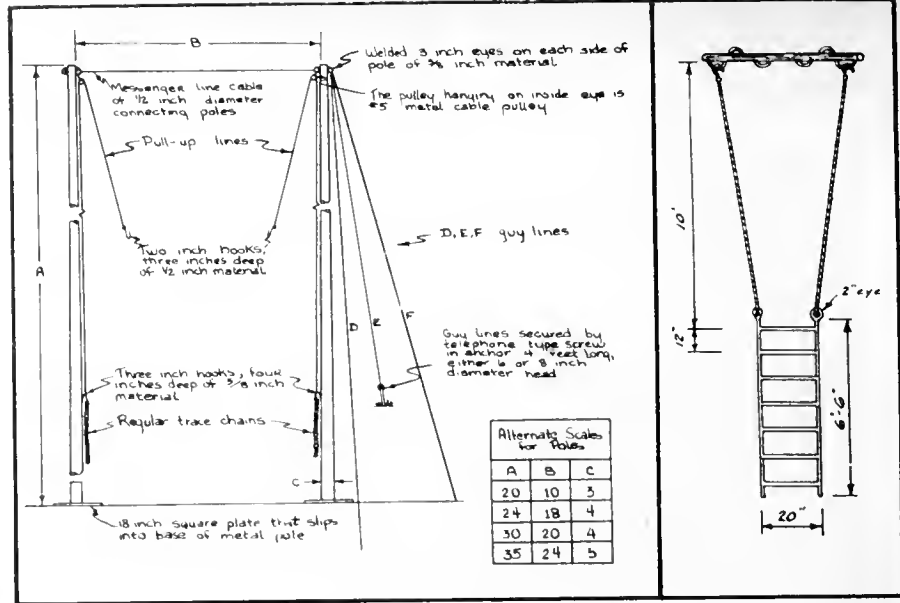 B
Welded 3 inch eyes on each side of
pole of 3/8 inch material
The pulley hanging on inside eye is
#5 metal cable pulley
Messenger line cable
of 1/2 inch diameter
connecting poles
Pull-up lines
Two inch hooks,
three inches deep
of 1/2 inch material
D, E, F guy lines
A
D
E
F
Guy lines secured by
telephone type screw
in anchor 4 feet long,
either 6 or 8 inch
diameter head
Three inch hooks, four
inches deep of 3/8 inch
material
Regular trace chains
C
18 inch square plate that slips
into base of metal pole
Alternate Scales
for Poles
A B C
20 10 3
24 18 4
30 20 4
35 24 5
10'
2" eye
12"
6'-6"
20"